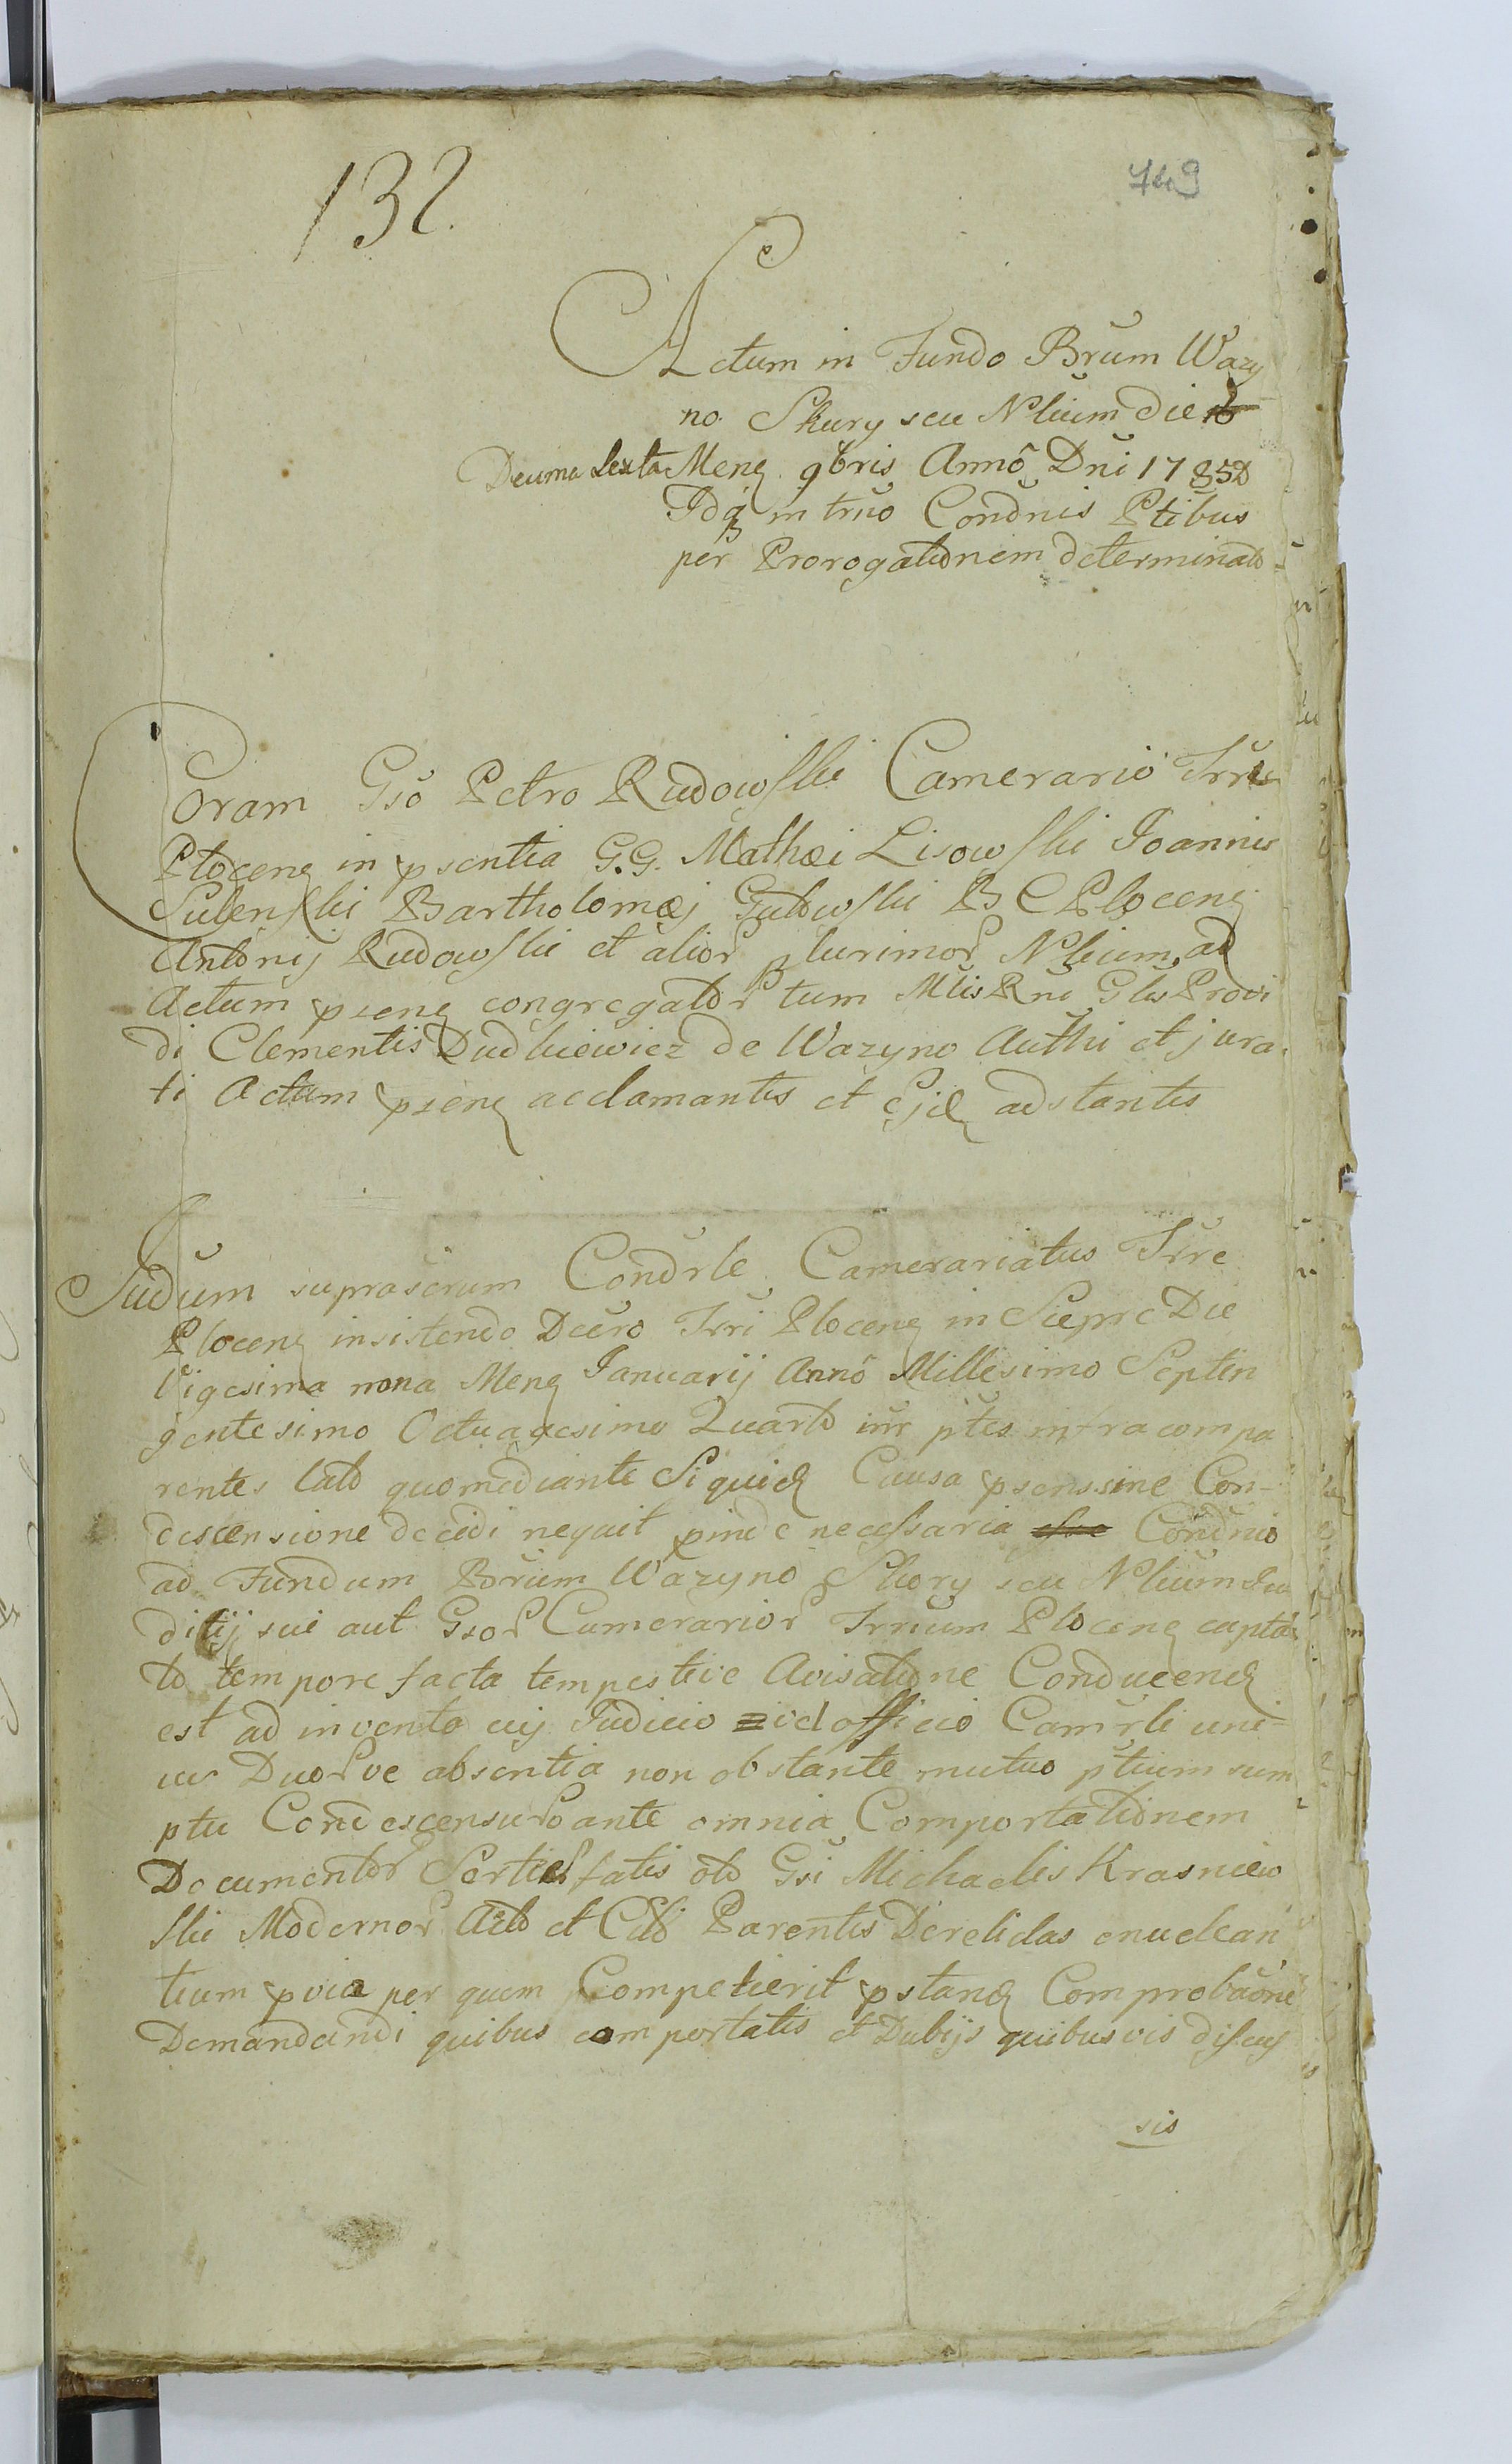 132.
749
Actum in Fundo Brum Wazy
no Skury seu Nlium die
Decima Sexta Mens 9bris Anno Dni 1785
Idq in trno Condnis Ptibus
per Prorogationem determinato
Coram Gso Petro Rudowski Camerario Trre
Plocens in psentia G.G. Mathæi Lisowski Joannis
Sulenski Bartholomæj Gutowski B C Plocens
Antonij Rudowski et alior plurimor Nlium ad
Actum psens congregator tum Mlis Rni Glis Provi
di Clementis Dudkiewicz de Wazyno Authi et jura
ti Actum psens acclamantis et Ejd adstantis
Judum suprascrum Condrle Camerariatus Trre
Plocens insistendo Decro Trri Plocens in Sieprc Die
Vigesima nona Mens Januarij Anno Millesimo Septin
gentesimo Octuagesimo Quarto inr ptes infra compa
rentes lato quo mediante Siquid Causa psens sine Con-
descensione decidi nequit pinde necessaria esse Condnio
ad Fundum Brum Wazyno Skory seu Nlium Iu
ditij sui aut Gsor Camerarior Trrium Plocens capta
to tempore facta tempestive Avisatione Conducend
est ad inventa cuj Judicio vel officio Camrli uni-
us Duorve absentia non obstante mutuo ptium sum
ptu Condescensuro ante omnia Comportationem
Documentor Sortis fatis olo Gsi Michaelis Krasniew
ski Modernor Acto et Citti Parentis Derelictas enuclean
tium pvia per quem Competierit pstand Comprobaone
Demandandi quibus comportatis et Dubijs quibusvis discus
sis